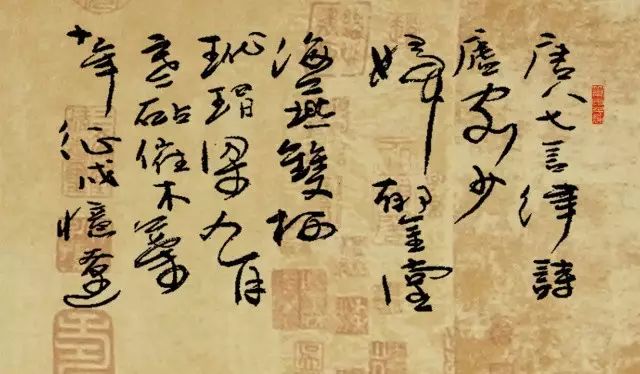 唐人七言律詩
盧家少
婦郁金堂
海燕雙栖
玳瑁梁九月
寒砧催木葉
十年征戍憶遼